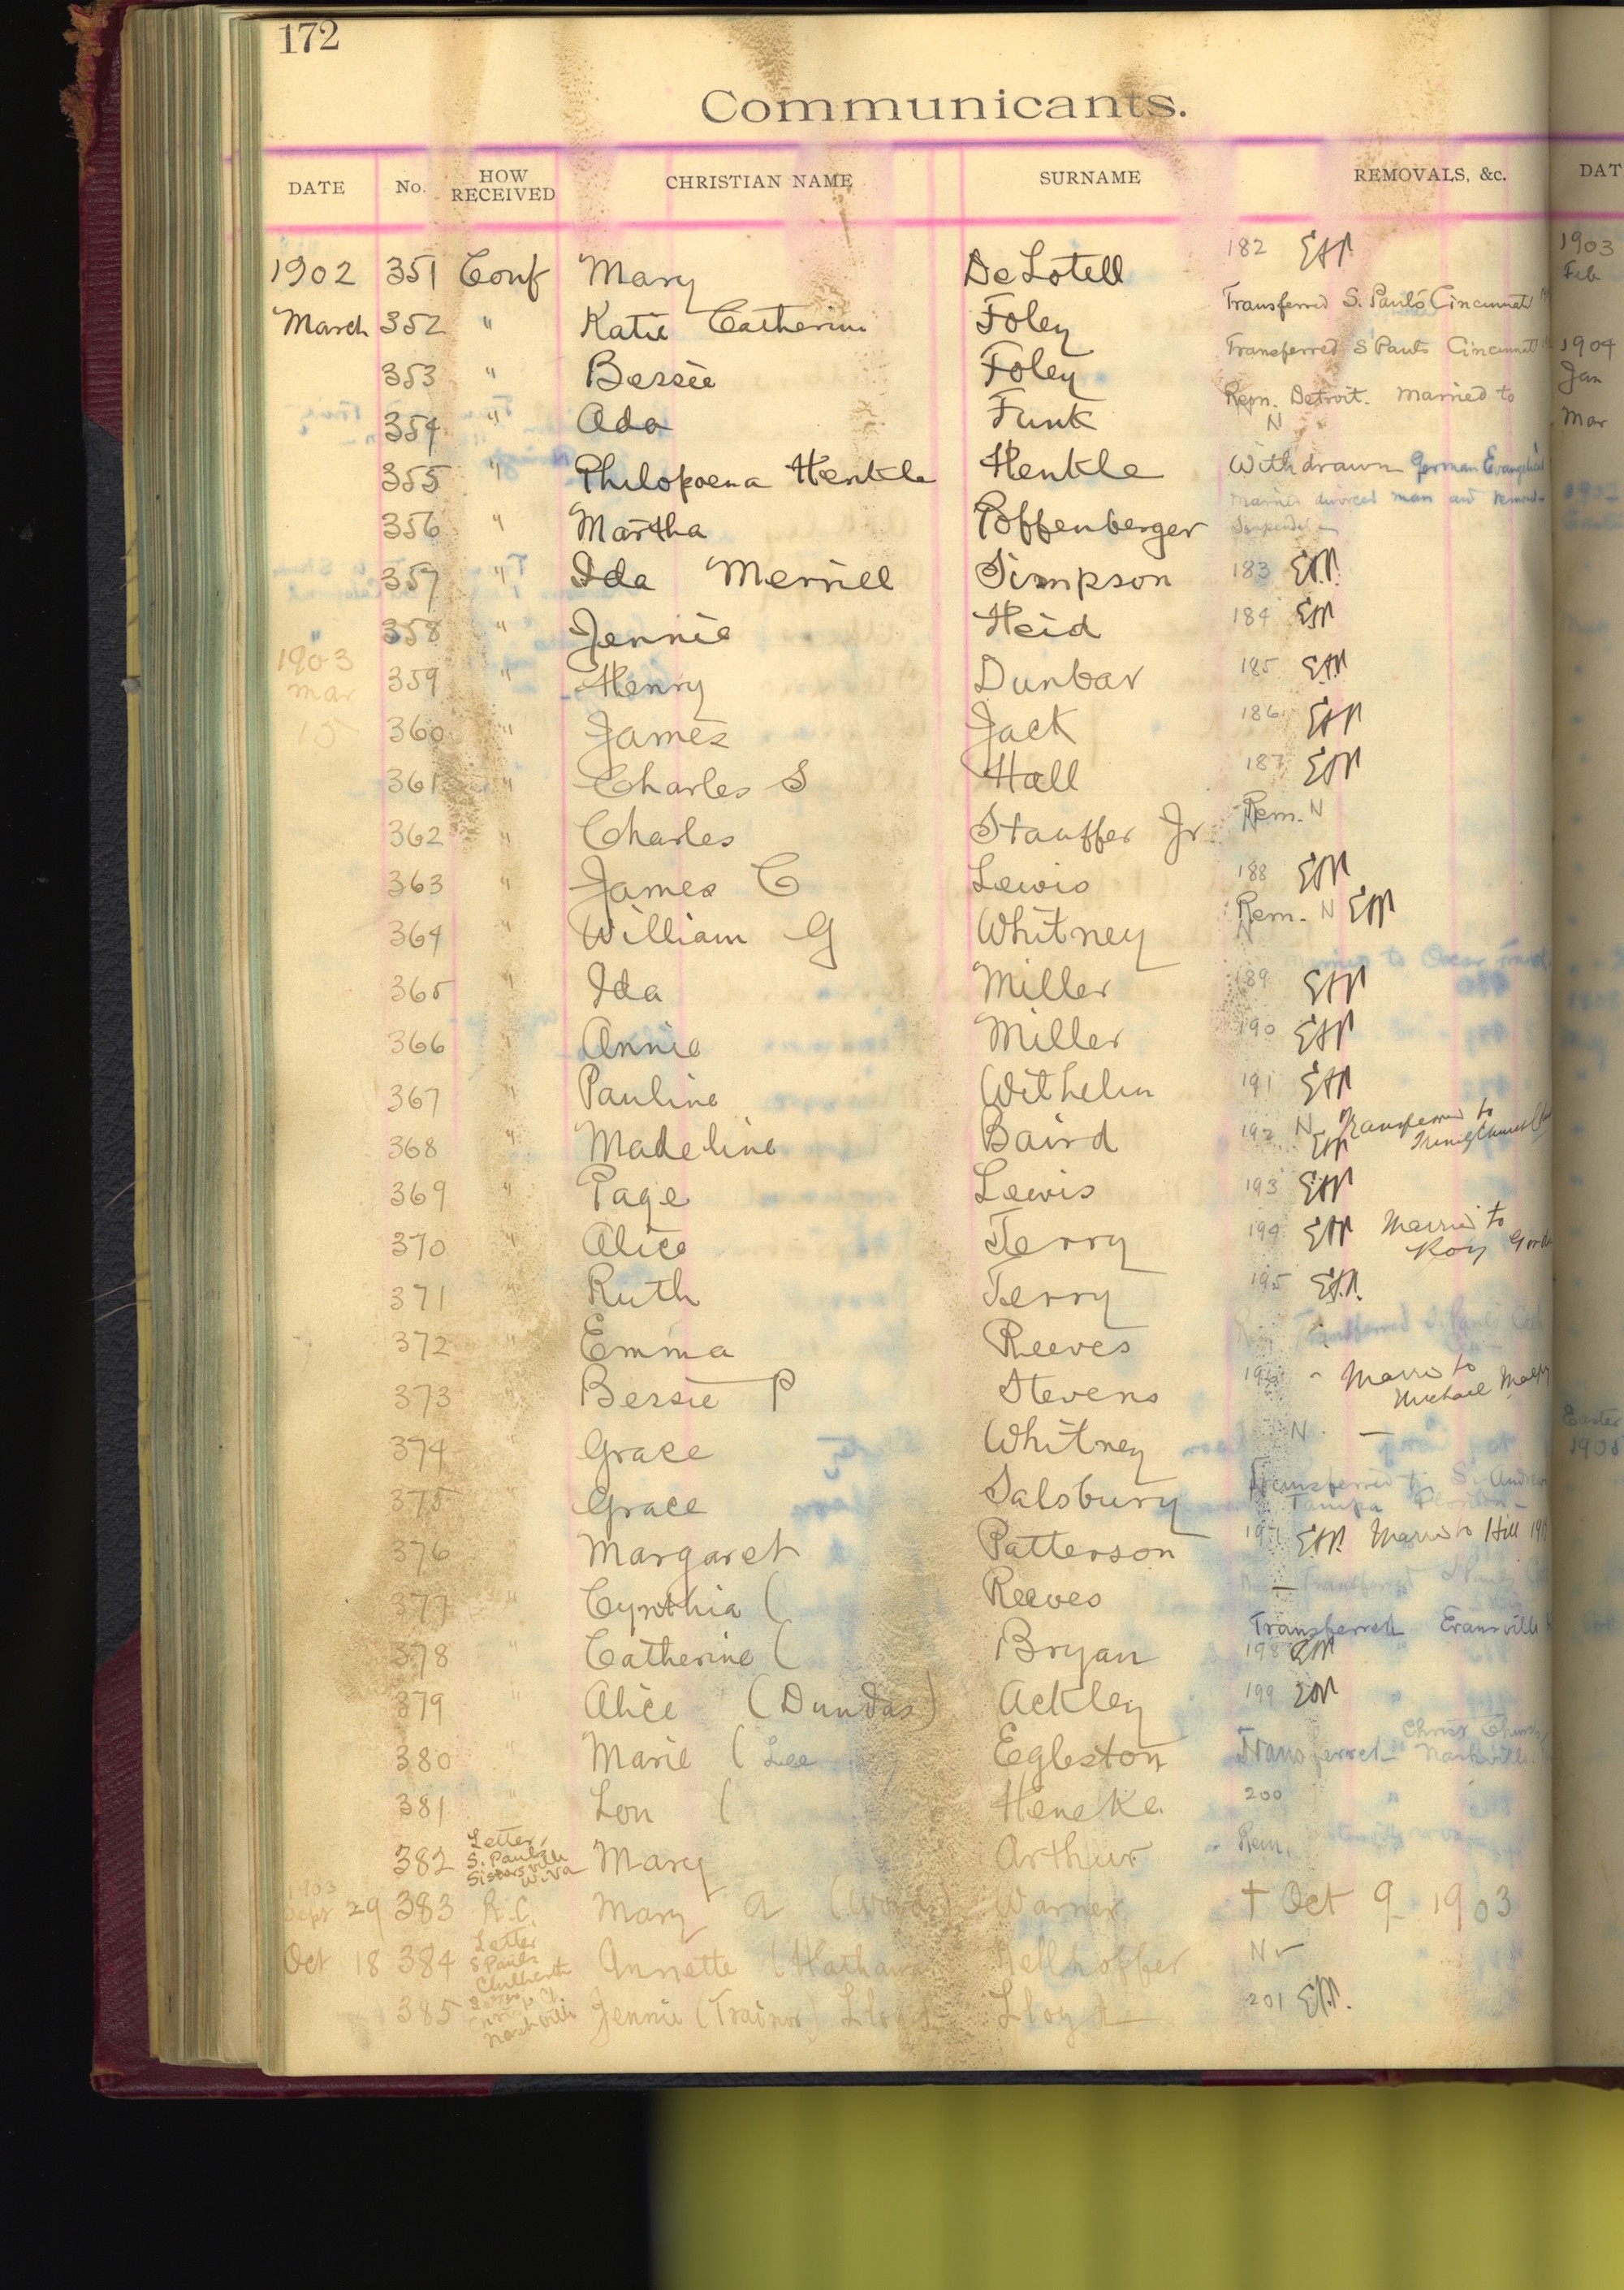 172
Communicants.
DATE No. HOW RECEIVED CHRISTIAN NAME SURNAME REMOVALS, &c.
1902 351 Conf Mary DeLotell 182
March 352 " Katie Catherine Foley Transferred S. Paul's Cincinnati
353 " Bessie Foley Transferred S Pauls Cincinnati
354 " Ada Funk Rem. Detroit. Married to
N
355 " Philopoena Henkle Henkle Withdrawn German Evangelical
356 " Martha Poffenberger Married divorced man and removed
Suspended
357 " Ida Merrill Simpson 183
358 " Jennie Heid 184
1903
Mar 359 " Henry Dunbar 185
15 360 " James Jack 186
361 " Charles S Hall 187
362 " Charles Stauffer Jr Rem. N
363 " James C Lewis 188
364 " William G Whitney Rem. N
365 " Ida Miller 189 married to Oscar
366 " Annie Miller 190
367 " Pauline Wilhelm 191
368 " Madeline Baird 192 N Transferred to
Trinity Church
369 " Page Lewis 193
370 Alice Terry 194 Married to
Roy
371 " Ruth Terry 195
372 " Emma Reeves Transferred S. Pauls
373 Bessie P Stevens 196 - Married to
Michael
374 " Grace Whitney N. —
375 " Grace Salsbury Transferred to S. Andrew
Tampa Florida
376 " Margaret Patterson 197 Married to Hill
377 " Cynthia ( Reeves Transferred S Pauls
Transferred Evansville
378 " Catherine ( Bryan 198
379 " Alice (Dundas) Ackley 199
380 " Marie ( Lee Egleston Transferred Christ Church
Nashville
381 " Lou ( Heneke 200
382 Letter S. Pauls Sistersville W.Va Mary Arthur Rem.
1903
Sept 29 383 R.C. Mary A Warner † Oct 9 1903
Oct 18 384 Letter S Pauls Chillicothe Annette N
385 Nashville Jennie (Trainor) Lloyd Lloyd 201
DAT
1903
Feb
1904
Jan
Mar
Easter